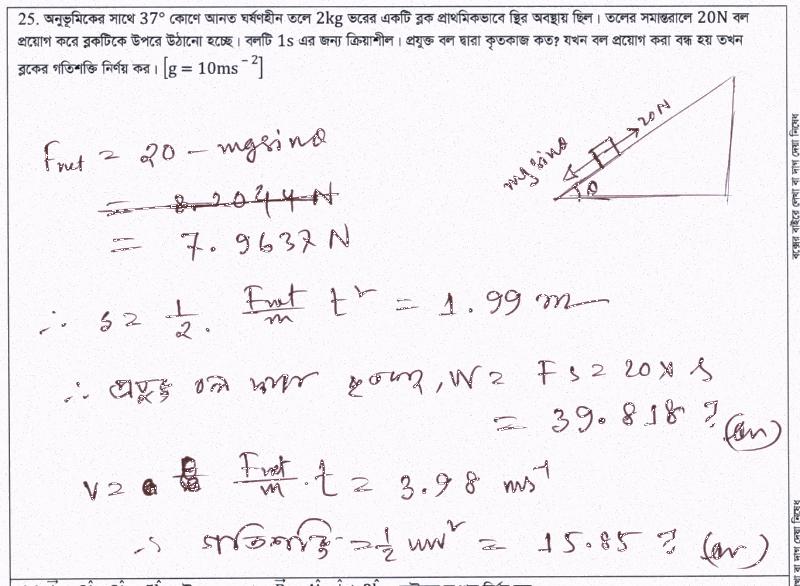 25. অনুভূমিকের সাথে 37° কোণে আনত ঘর্ষণহীন তলে 2kg ভরের একটি ব্লক প্রাথমিকভাবে স্থির অবস্থায় ছিল। তলের সমান্তরালে 20N বল
প্রয়োগ করে ব্লকটিকে উপরে উঠানো হচ্ছে। বলটি 1s এর জন্য ক্রিয়াশীল। প্রযুক্ত বল দ্বারা কৃতকাজ কত? যখন বল প্রয়োগ করা বন্ধ হয় তখন
ব্লকের গতিশক্তি নির্ণয় কর। [g = 10ms⁻²]
mg sinθ
20N
θ
Fnet = 20 − mg sinθ
= 8.2044 N
= 7.9637 N
∴ s = 1/2 . Fnet/m t² = 1.99 m
∴ প্রযুক্ত বল দ্বারা কৃতকাজ, W = Fs = 20 × s
= 39.818 J (Ans)
V = Fnet/m . t = 3.98 ms⁻¹
∴ গতিশক্তি = 1/2 mv² = 15.85 J (Ans)
বক্সের বাইরে লেখা বা দাগ দেয়া নিষেধ